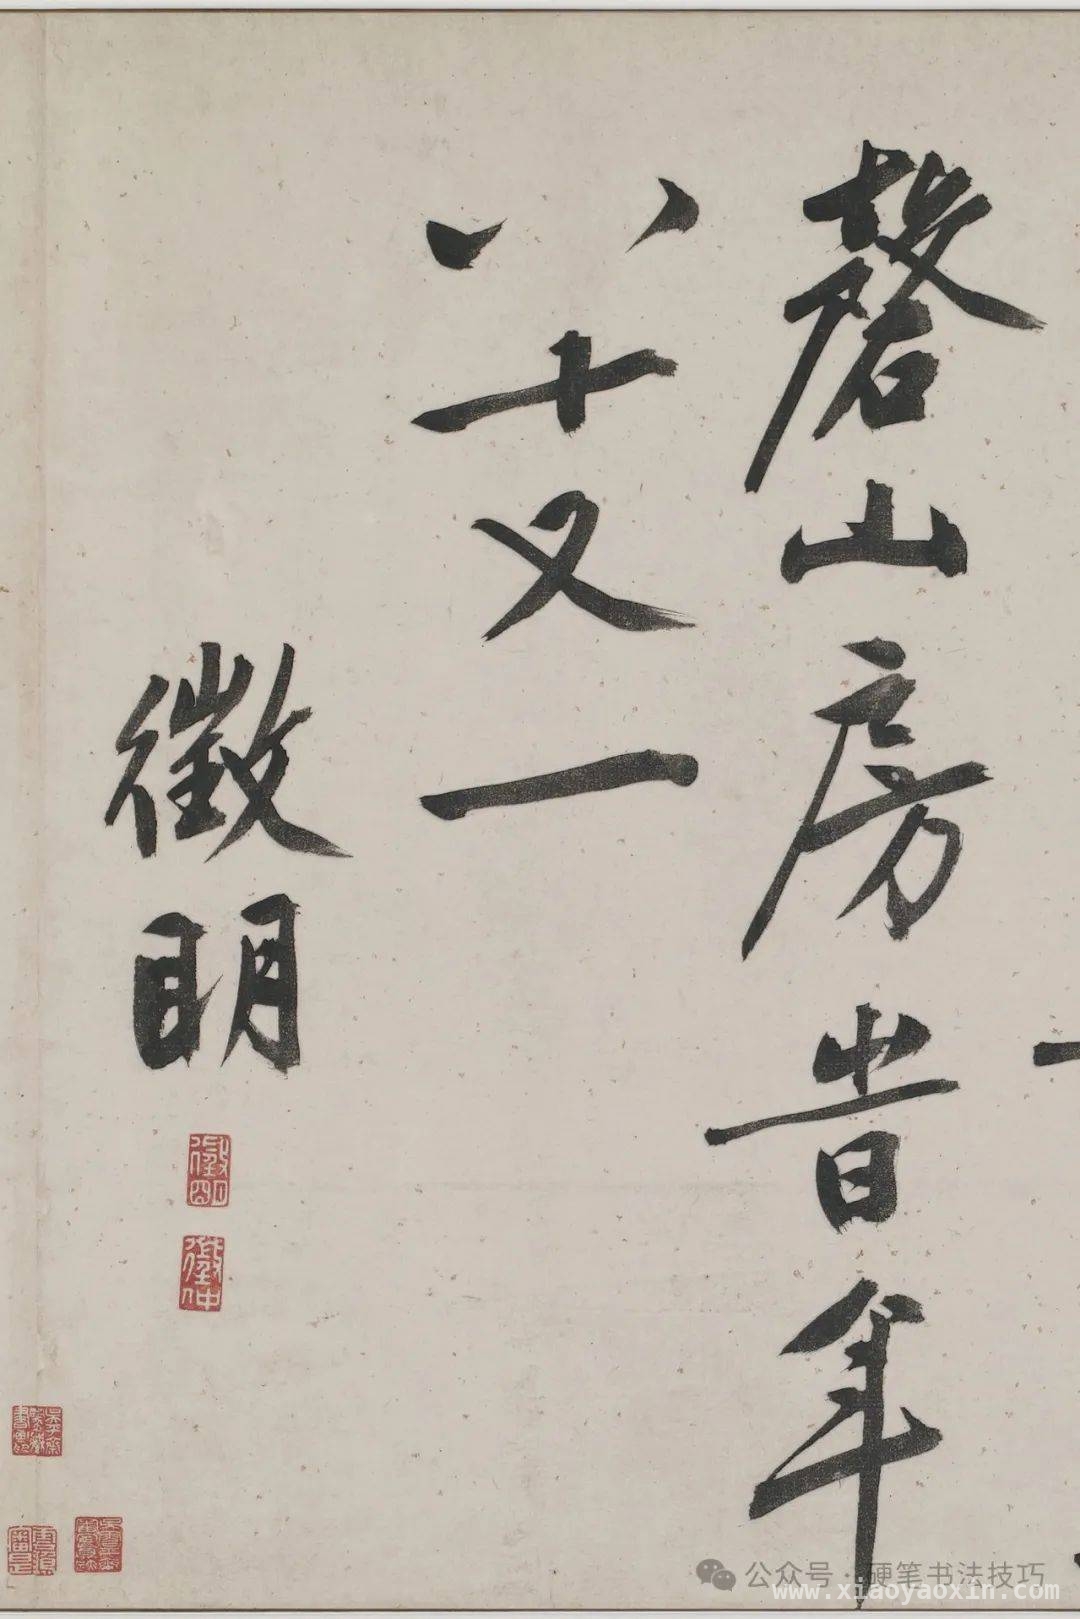 磬山房旹年
八十又一
徵明
徵明
徵仲
公众号 · 硬笔书法技巧
www.xiaoyaoxin.com